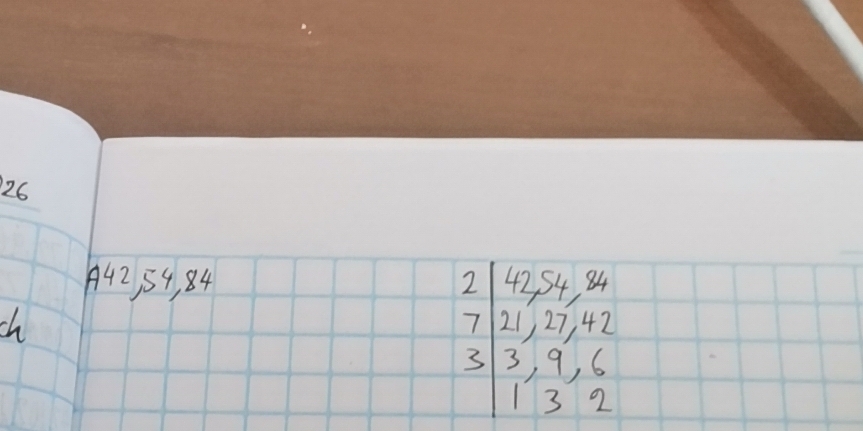 26
ch
A 42,54,84
2 | 42,54,84
7 | 21,27,42
3 | 3,9,6
| 1 3 2